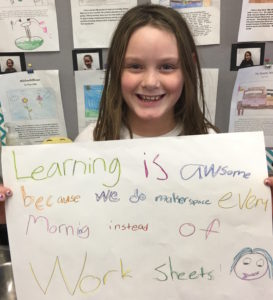 Learning is awsome
because we do makerspace every
Morning instead of
Work sheets!